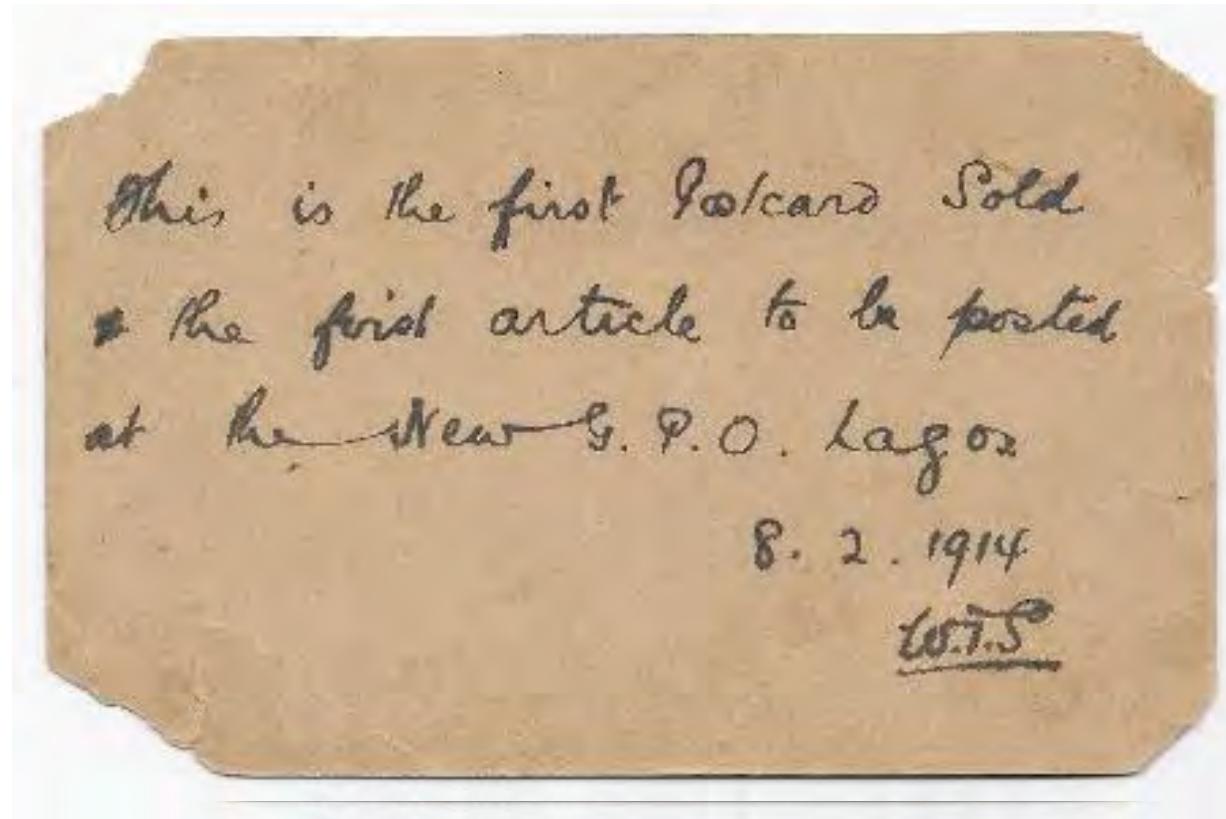 This is the first Postcard Sold
& the first article to be posted
at the New G. P. O. Lagos
8. 2. 1914
W.T.S